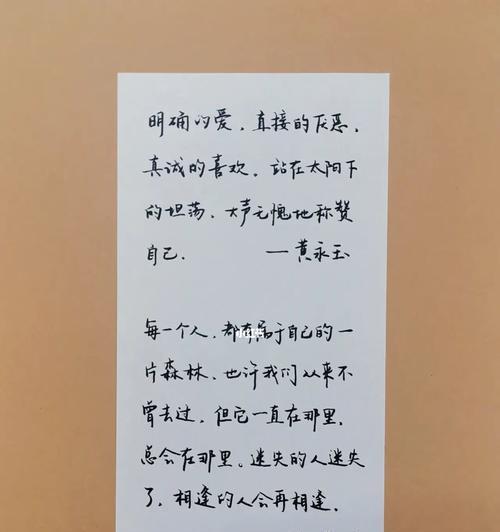 明确的爱,直接的厌恶,
真诚的喜欢。站在太阳下
的坦荡、大声无愧地称赞
自己. ——黄永玉
每一个人,都有属于自己的一
片森林、也许我们从来不
曾去过,但它一直在那里,
总会在那里。迷失的人迷失
了,相逢的人会再相逢。